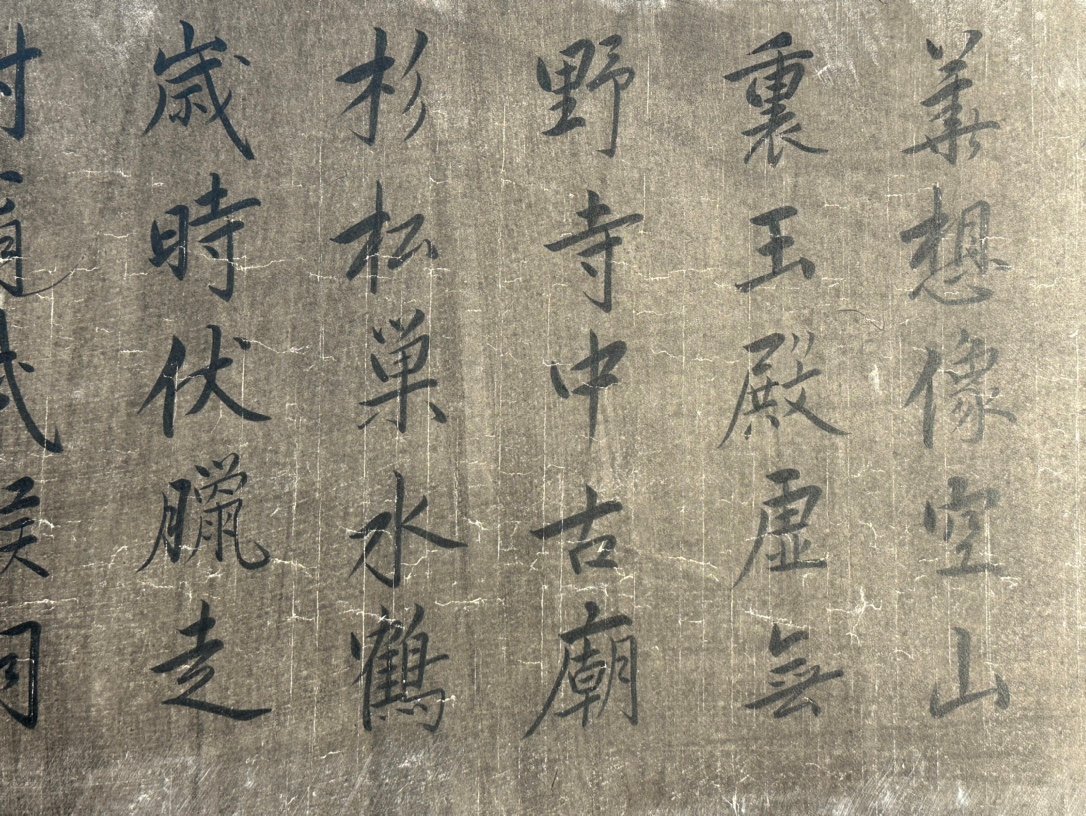 華想像空山
裏玉殿虛無
野寺中古廟
杉松巢水鶴
歲時伏臘走